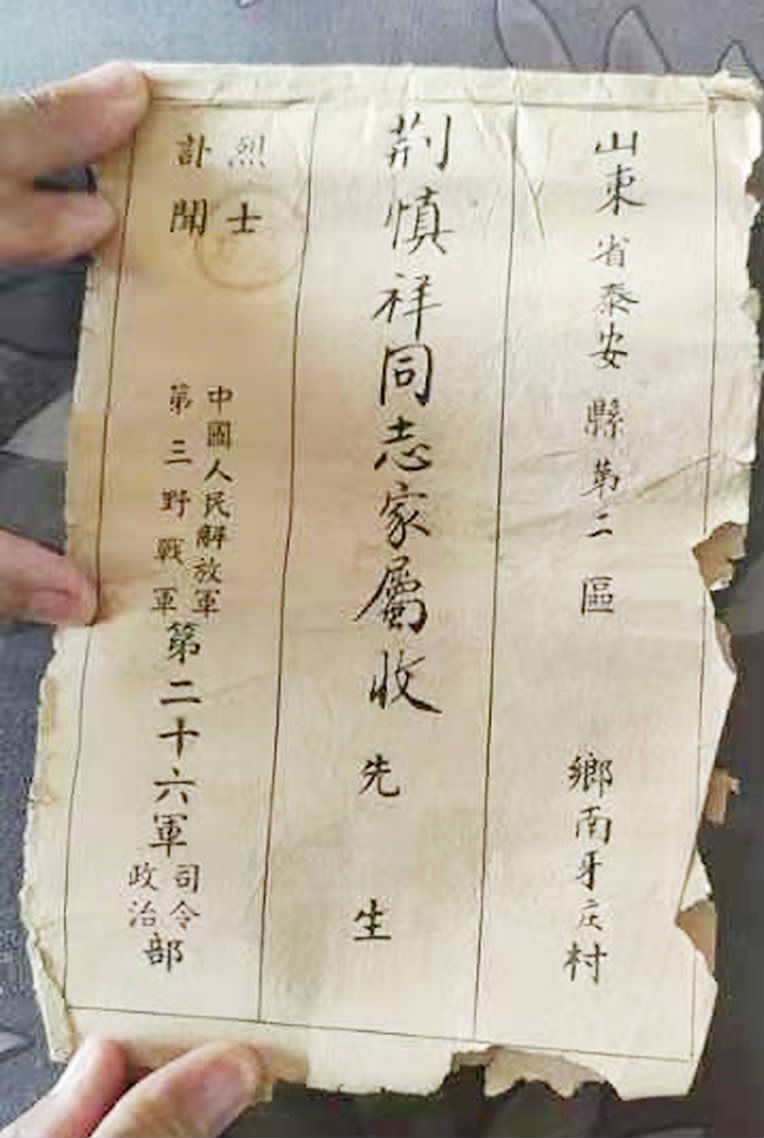 山東省泰安縣第二區 鄉南牙庄村
荊慎祥同志家屬收 先生
烈士
訃聞
中國人民解放軍
第三野戰軍
第二十六軍
司令
政治
部